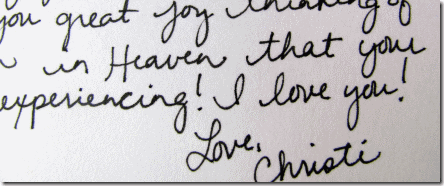 you great joy thinking of
in Heaven that your
experiencing! I love you!
Love,
Christi